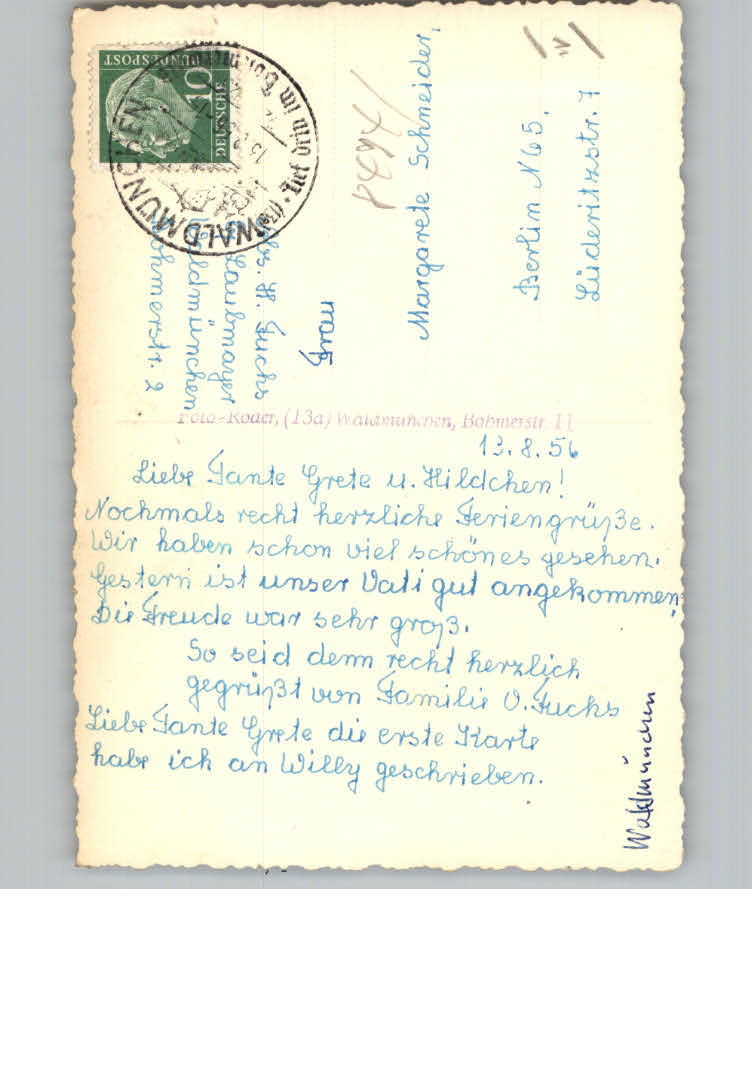 10
DEUTSCHE
BUNDESPOST
WALDMÜNCHEN
Tief drin im
H. Fuchs
Laubmayer
Waldmünchen
Böhmerstr. 2
Frau
Margarete Schneider,
Berlin N65,
Lüderitzstr. 7
Foto-Röder, (13a) Waldmünchen, Böhmerstr. 11
13.8.56
Liebe Tante Grete u. Hildchen!
Nochmals recht herzliche Feriengrüße.
Wir haben schon viel schönes gesehen.
Gestern ist unser Vati gut angekommen.
Die Freude war sehr groß.
So seid denn recht herzlich
gegrüßt von Familie O. Fuchs
Liebe Tante Grete die erste Karte
habe ich an Willy geschrieben.
Waldmünchen